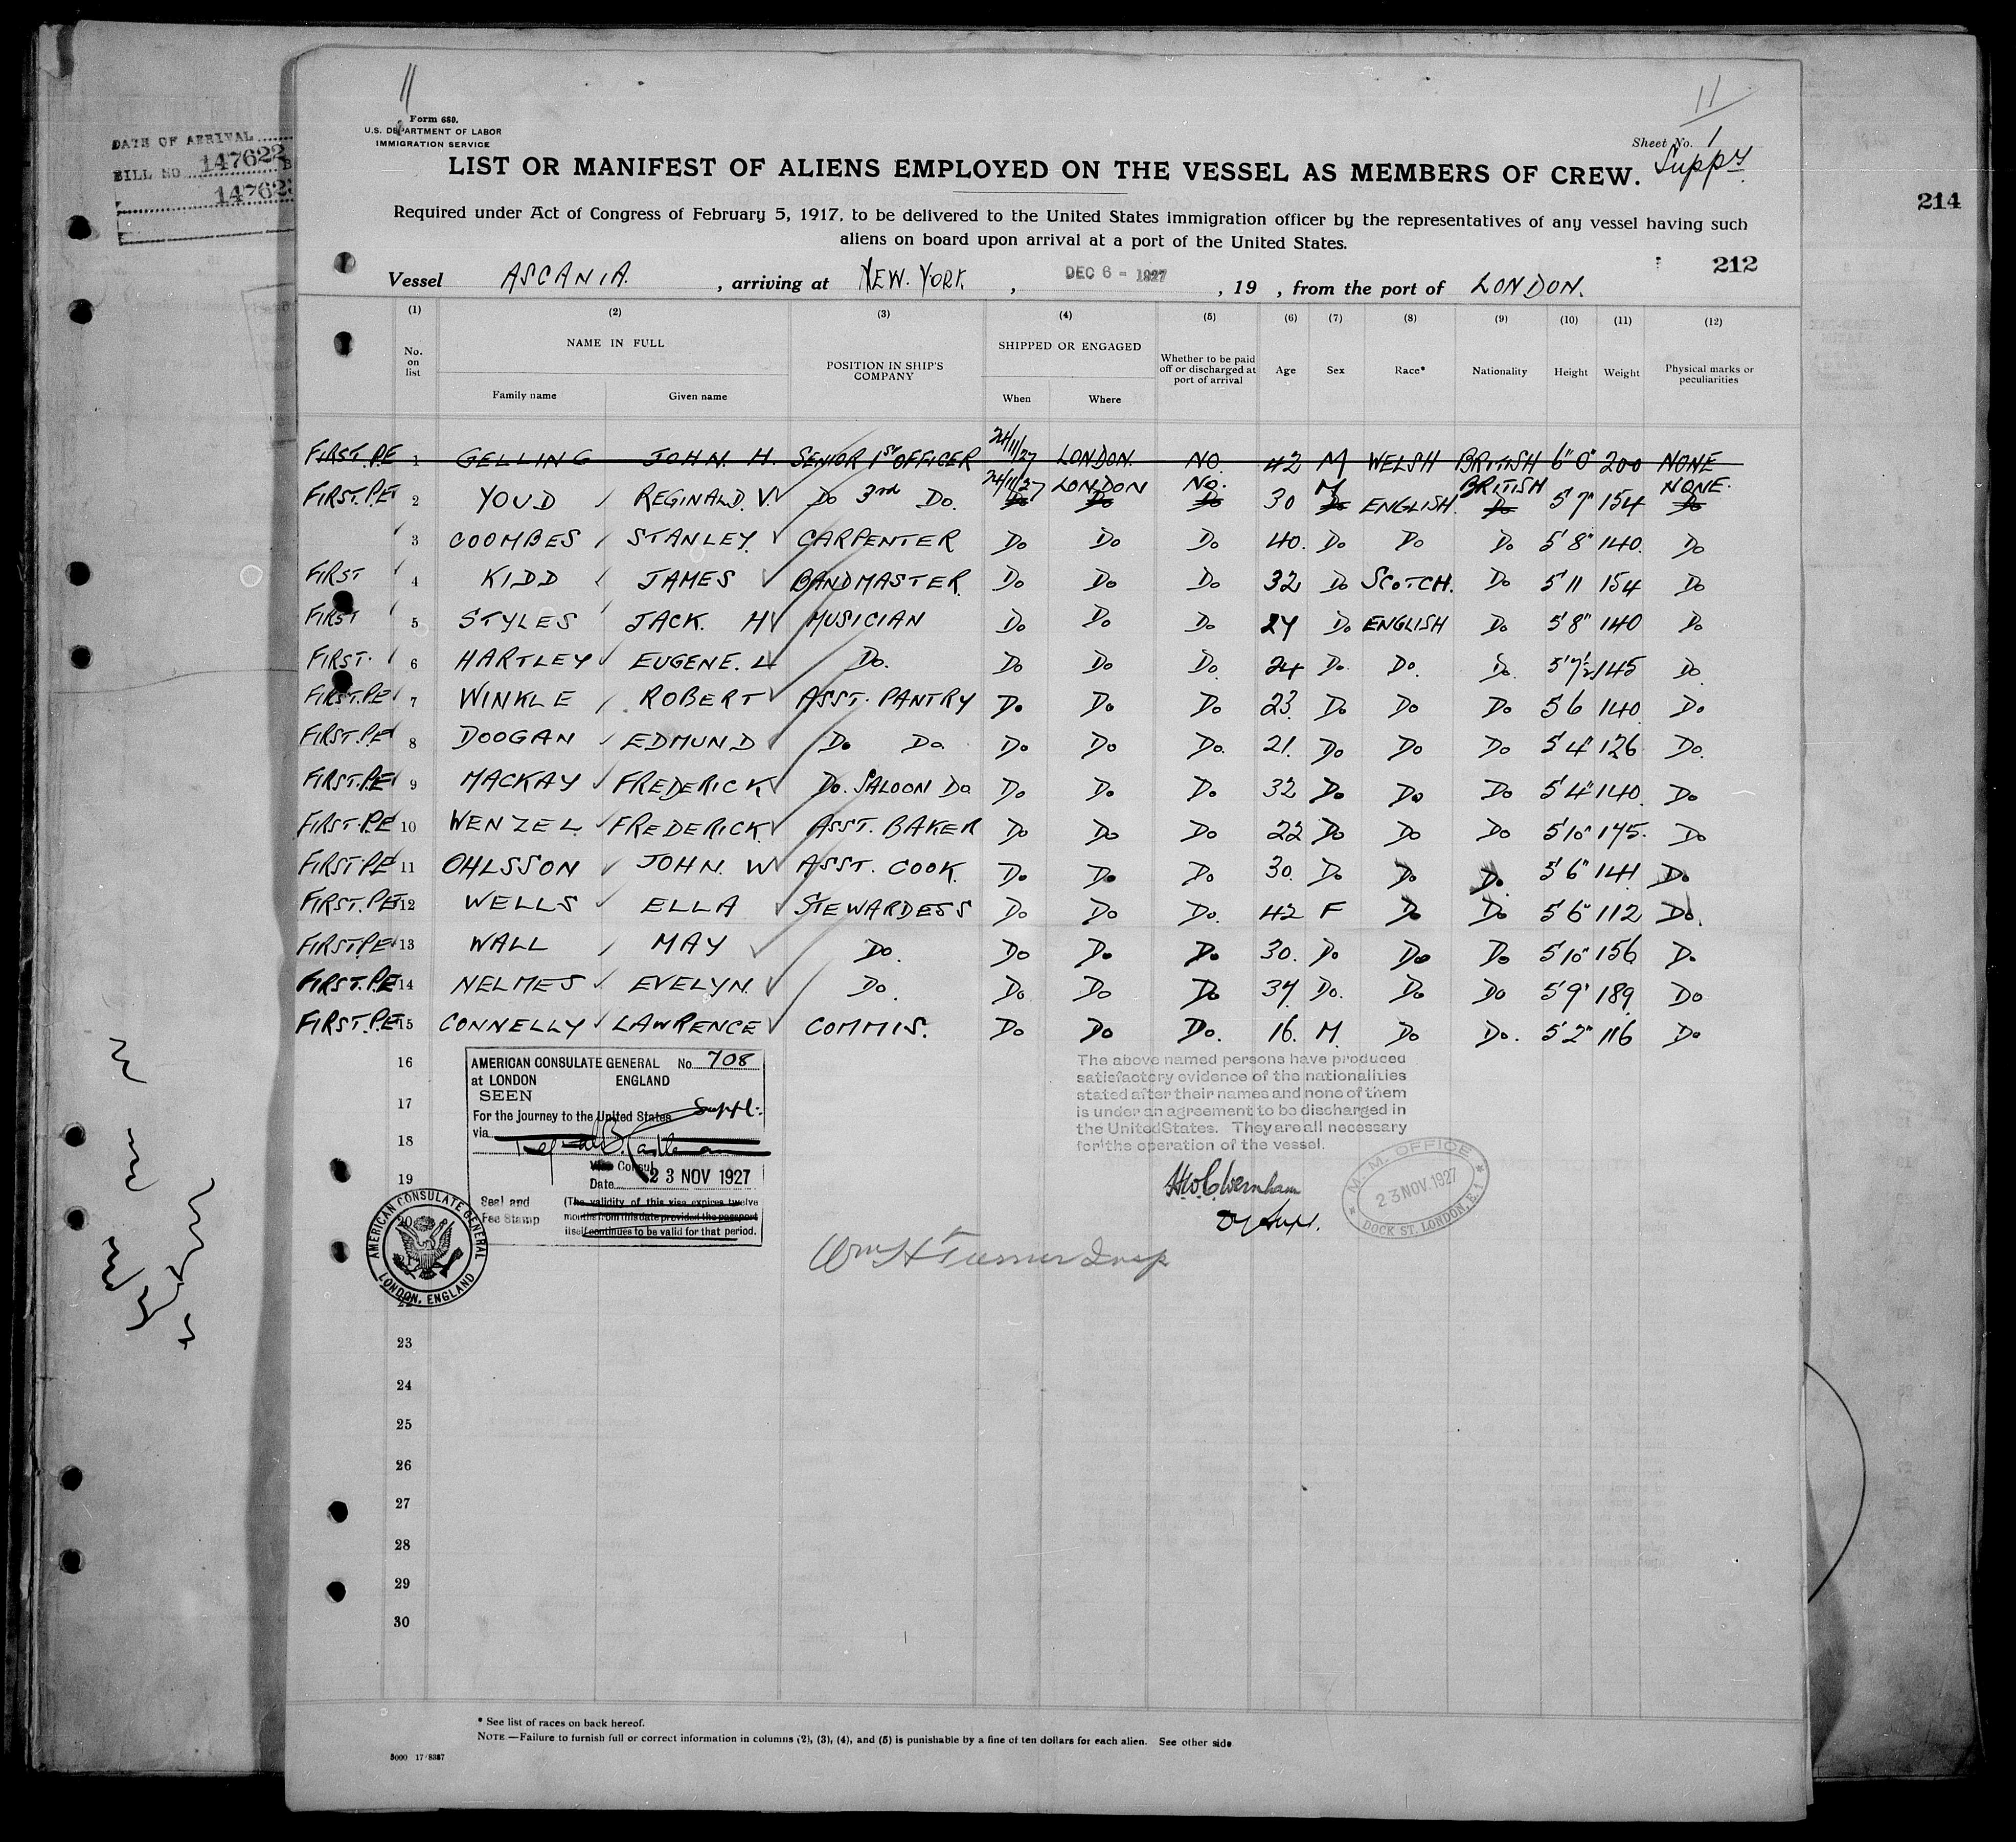 11
11
Form 689.
U.S. DEPARTMENT OF LABOR
IMMIGRATION SERVICE
Sheet No. 1
Suppy
DATE OF ARRIVAL
BILL NO 147622
14762
LIST OR MANIFEST OF ALIENS EMPLOYED ON THE VESSEL AS MEMBERS OF CREW.
214
Required under Act of Congress of February 5, 1917, to be delivered to the United States immigration officer by the representatives of any vessel having such
aliens on board upon arrival at a port of the United States.
212
Vessel ASCANIA. , arriving at NEW. YORK. , DEC 6 - 1927 , 19 , from the port of LONDON.
(1) (2) (3) (4) (5) (6) (7) (8) (9) (10) (11) (12)
No. on list NAME IN FULL POSITION IN SHIP'S COMPANY SHIPPED OR ENGAGED Whether to be paid off or discharged at port of arrival Age Sex Race* Nationality Height Weight Physical marks or peculiarities
Family name Given name When Where
FIRST.P.E 1 GELLING JOHN. H. SENIOR 1ST OFFICER 24/11/27 LONDON. NO. 42 M WELSH BRITISH 6'0" 200 NONE
24/11/27 LONDON No. M BRITISH NONE.
FIRST.PE 2 YOUD REGINALD. V. Do 3rd Do. Do Do Do 30 Do ENGLISH. Do 5'7" 154 Do
3 COOMBES STANLEY. CARPENTER Do Do Do 40. Do Do Do 5'8" 140. Do
FIRST 4 KIDD JAMES BANDMASTER. Do Do Do 32 Do SCOTCH. Do 5'11 154 Do
FIRST 5 STYLES JACK. H MUSICIAN Do Do Do 24 Do ENGLISH Do 5'8" 140 Do
FIRST. 6 HARTLEY EUGENE. L Do. Do Do Do. 24 Do. Do. Do. 5'7½ 145 Do
FIRST.PE 7 WINKLE ROBERT ASST. PANTRY Do Do Do 23. Do Do Do 5'6 140 Do
FIRST.PE 8 DOOGAN EDMUND Do Do. Do Do Do. 21. Do Do Do 5'4" 126 Do.
FIRST.P.E 9 MACKAY FREDERICK Do. SALOON Do Do Do Do 32 Do Do Do 5'4" 140. Do
FIRST.P.E 10 WENZEL FREDERICK. ASST. BAKER Do Do Do 22 Do Do Do 5'10" 175. Do
FIRST.PE 11 OHLSSON JOHN. W ASST. COOK. Do Do Do 30. Do Do Do. 5'6" 141. Do
FIRST.PE 12 WELLS ELLA STEWARDESS Do Do Do. 42 F Do Do 5'6" 112 Do.
FIRST.PE 13 WALL MAY Do. Do Do. Do 30. Do Do Do 5'10" 156 Do
FIRST.P.E 14 NELMES EVELYN. Do. Do Do Do 34. Do. Do Do 5'9" 189 Do
FIRST.P.E 15 CONNELLY LAWRENCE COMMIS. Do Do Do. 16. M. Do Do. 5'2" 116 Do
16
17
18
19
20
22
23
24
25
26
27
28
29
30
AMERICAN CONSULATE GENERAL No. 708
at LONDON ENGLAND
SEEN
For the journey to the United States Suppl:
via
Vice Consul
Date 23 NOV 1927
Seal and Fee Stamp
(The validity of this visa expires twelve
months from this date provided the passport
itself continues to be valid for that period.
AMERICAN CONSULATE GENERAL
LONDON, ENGLAND
The above named persons have produced
satisfactory evidence of the nationalities
stated after their names and none of them
is under an agreement to be discharged in
the United States. They are all necessary
for the operation of the vessel.
H.W.C. Wernham
Dy Supt.
M. M. OFFICE
23 NOV 1927
DOCK ST. LONDON, E.1
Wm H Turner Insp
* See list of races on back hereof.
NOTE.—Failure to furnish full or correct information in columns (2), (3), (4), and (5) is punishable by a fine of ten dollars for each alien. See other side
5000 17/8387